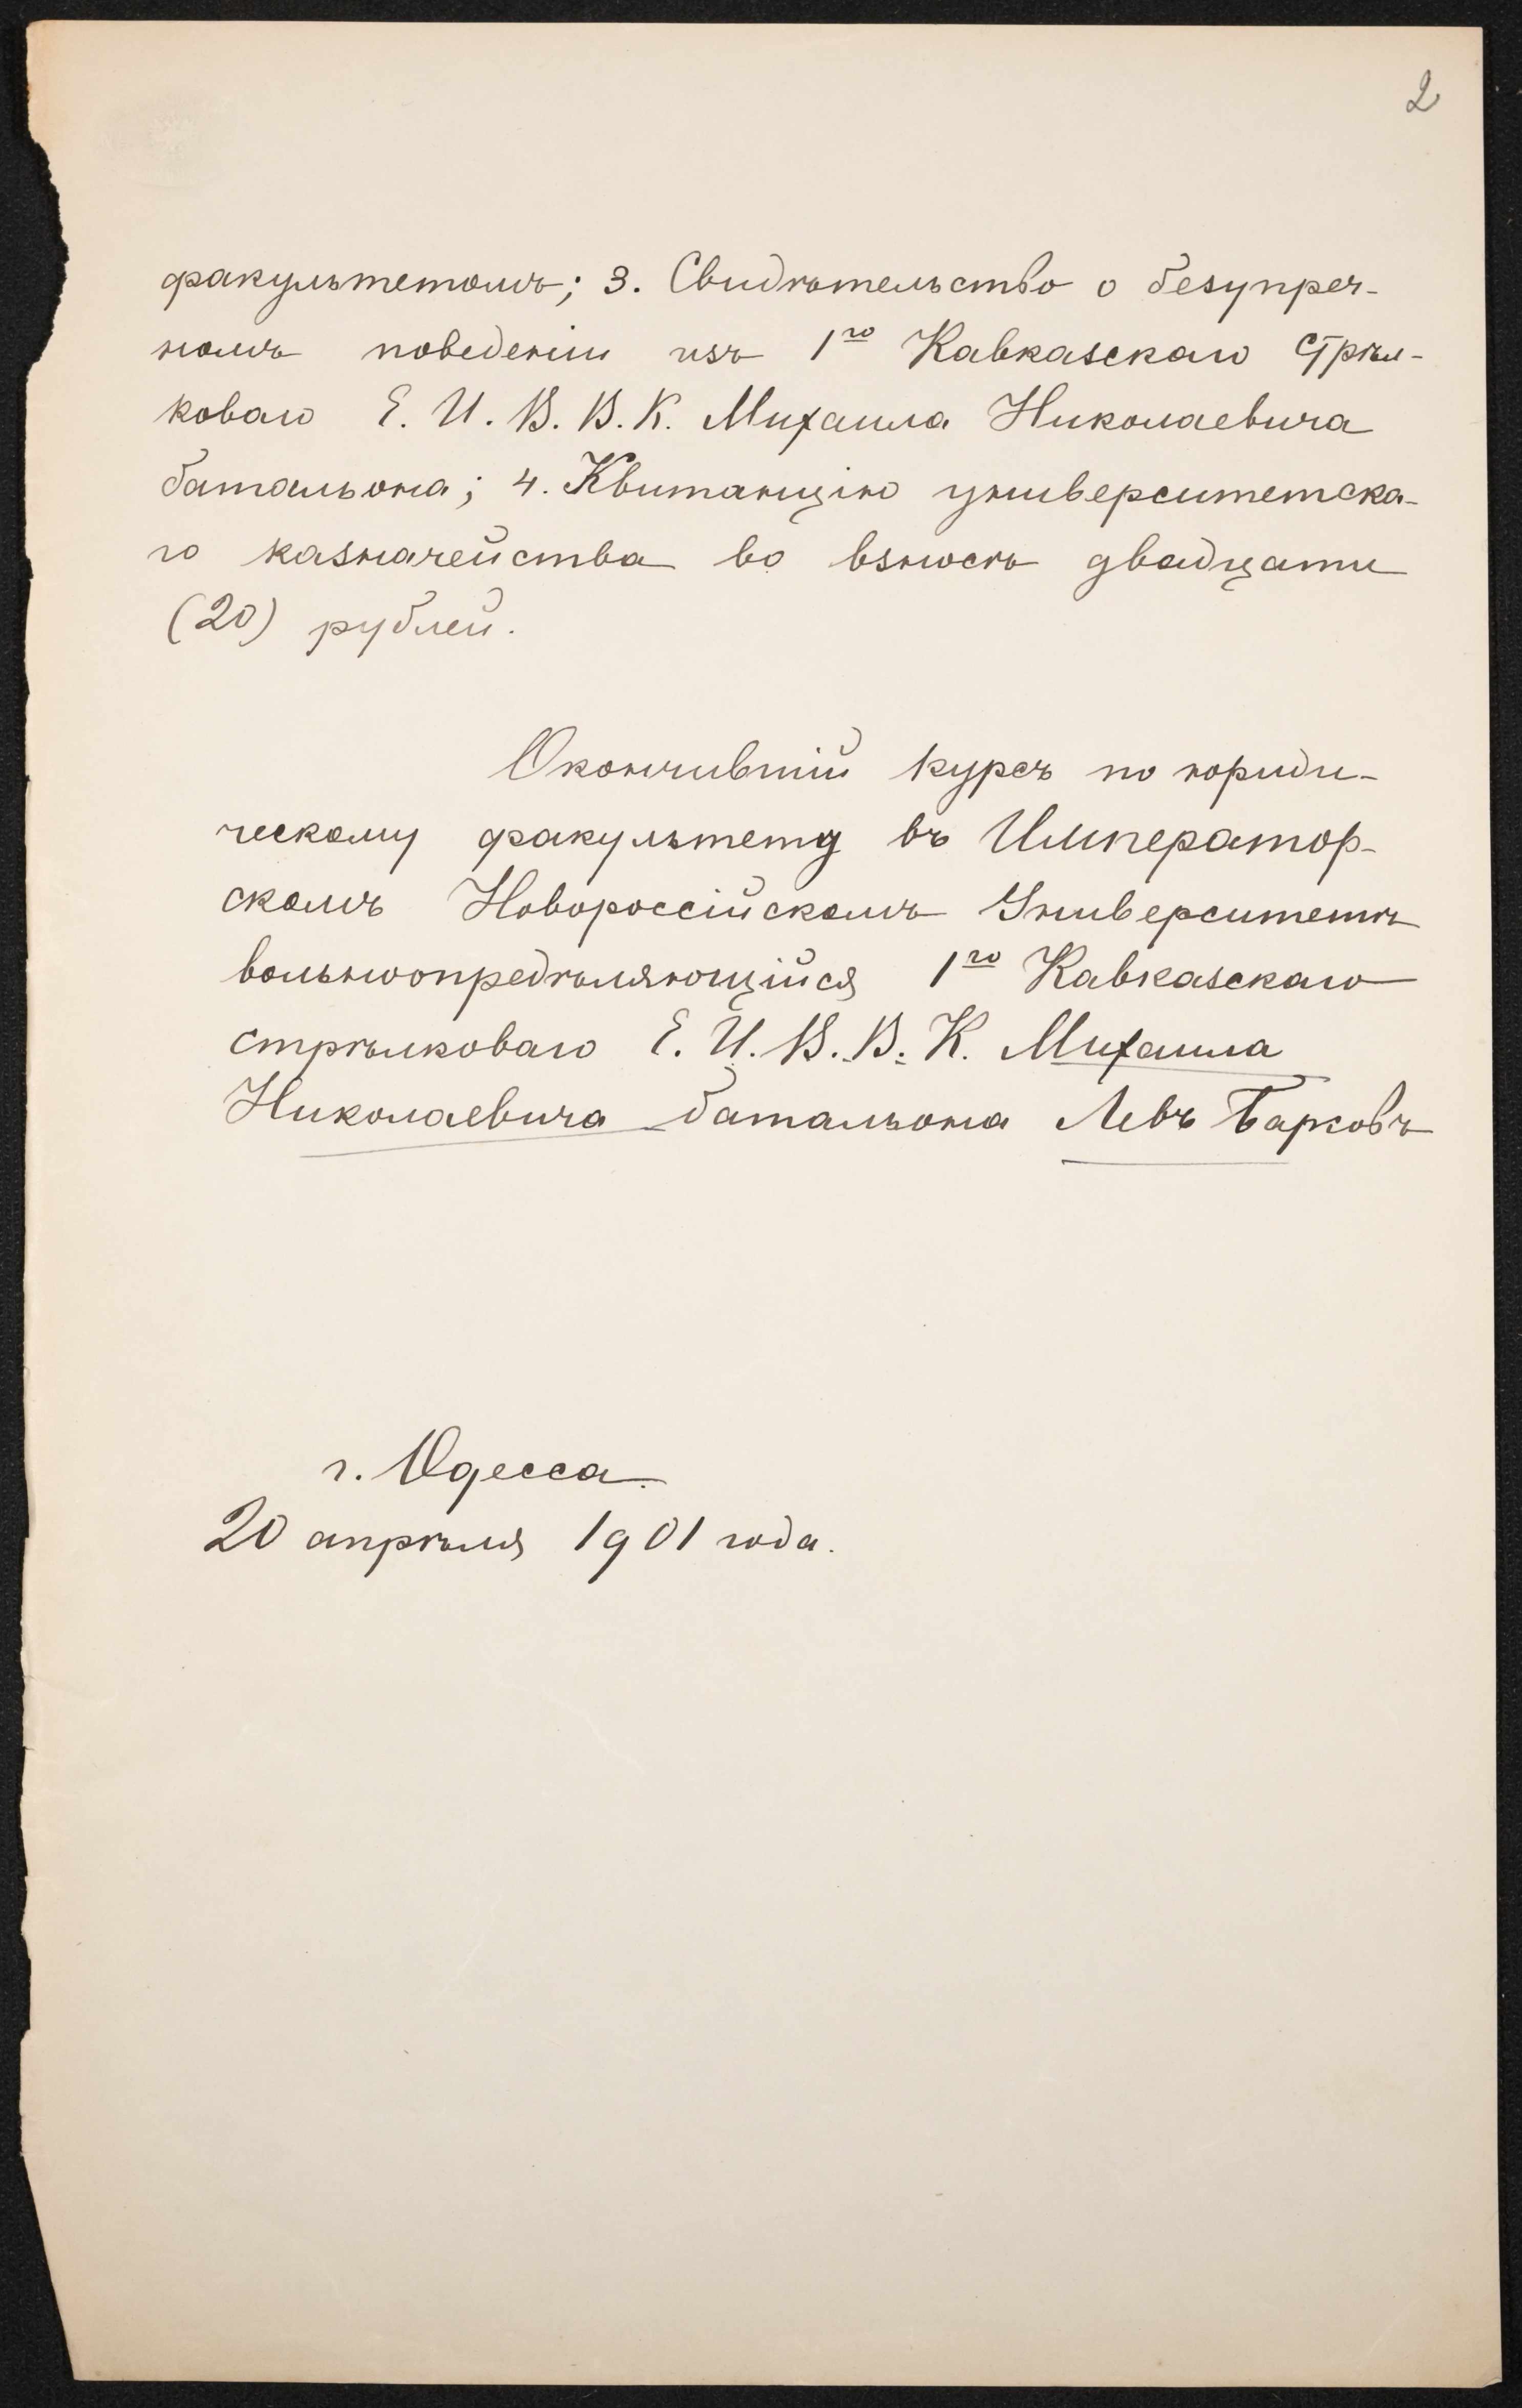 2
факультетомъ; 3. Свидѣтельство о безупреч-
номъ поведеніи изъ 1го Кавказскаго Стрѣл-
коваго Е. И. В. В. К. Михаила Николаевича
батальона; 4. Квитанцію университетска-
го казначейства во взносѣ двадцати
(20) рублей.
Окончившій курсъ по юриди-
ческому факультету въ Император-
скомъ Новороссійскомъ Университетѣ
вольноопредѣляющійся 1го Кавказскаго
стрѣлковаго Е. И. В. В. К. Михаила
Николаевича батальона Левъ Барковъ
г. Одесса.
20 апрѣля 1901 года.